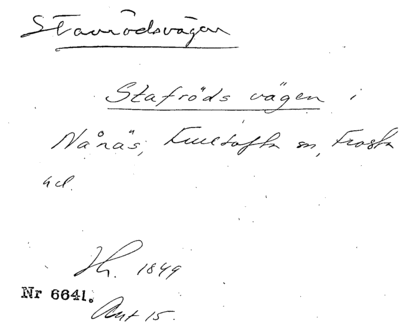 Stavrödsvägen
Stafröds vägen i
Nånäs, Fulltofta sn, Frosta
hd.
Hr. 1849
Nr 6641.
Akt 15.